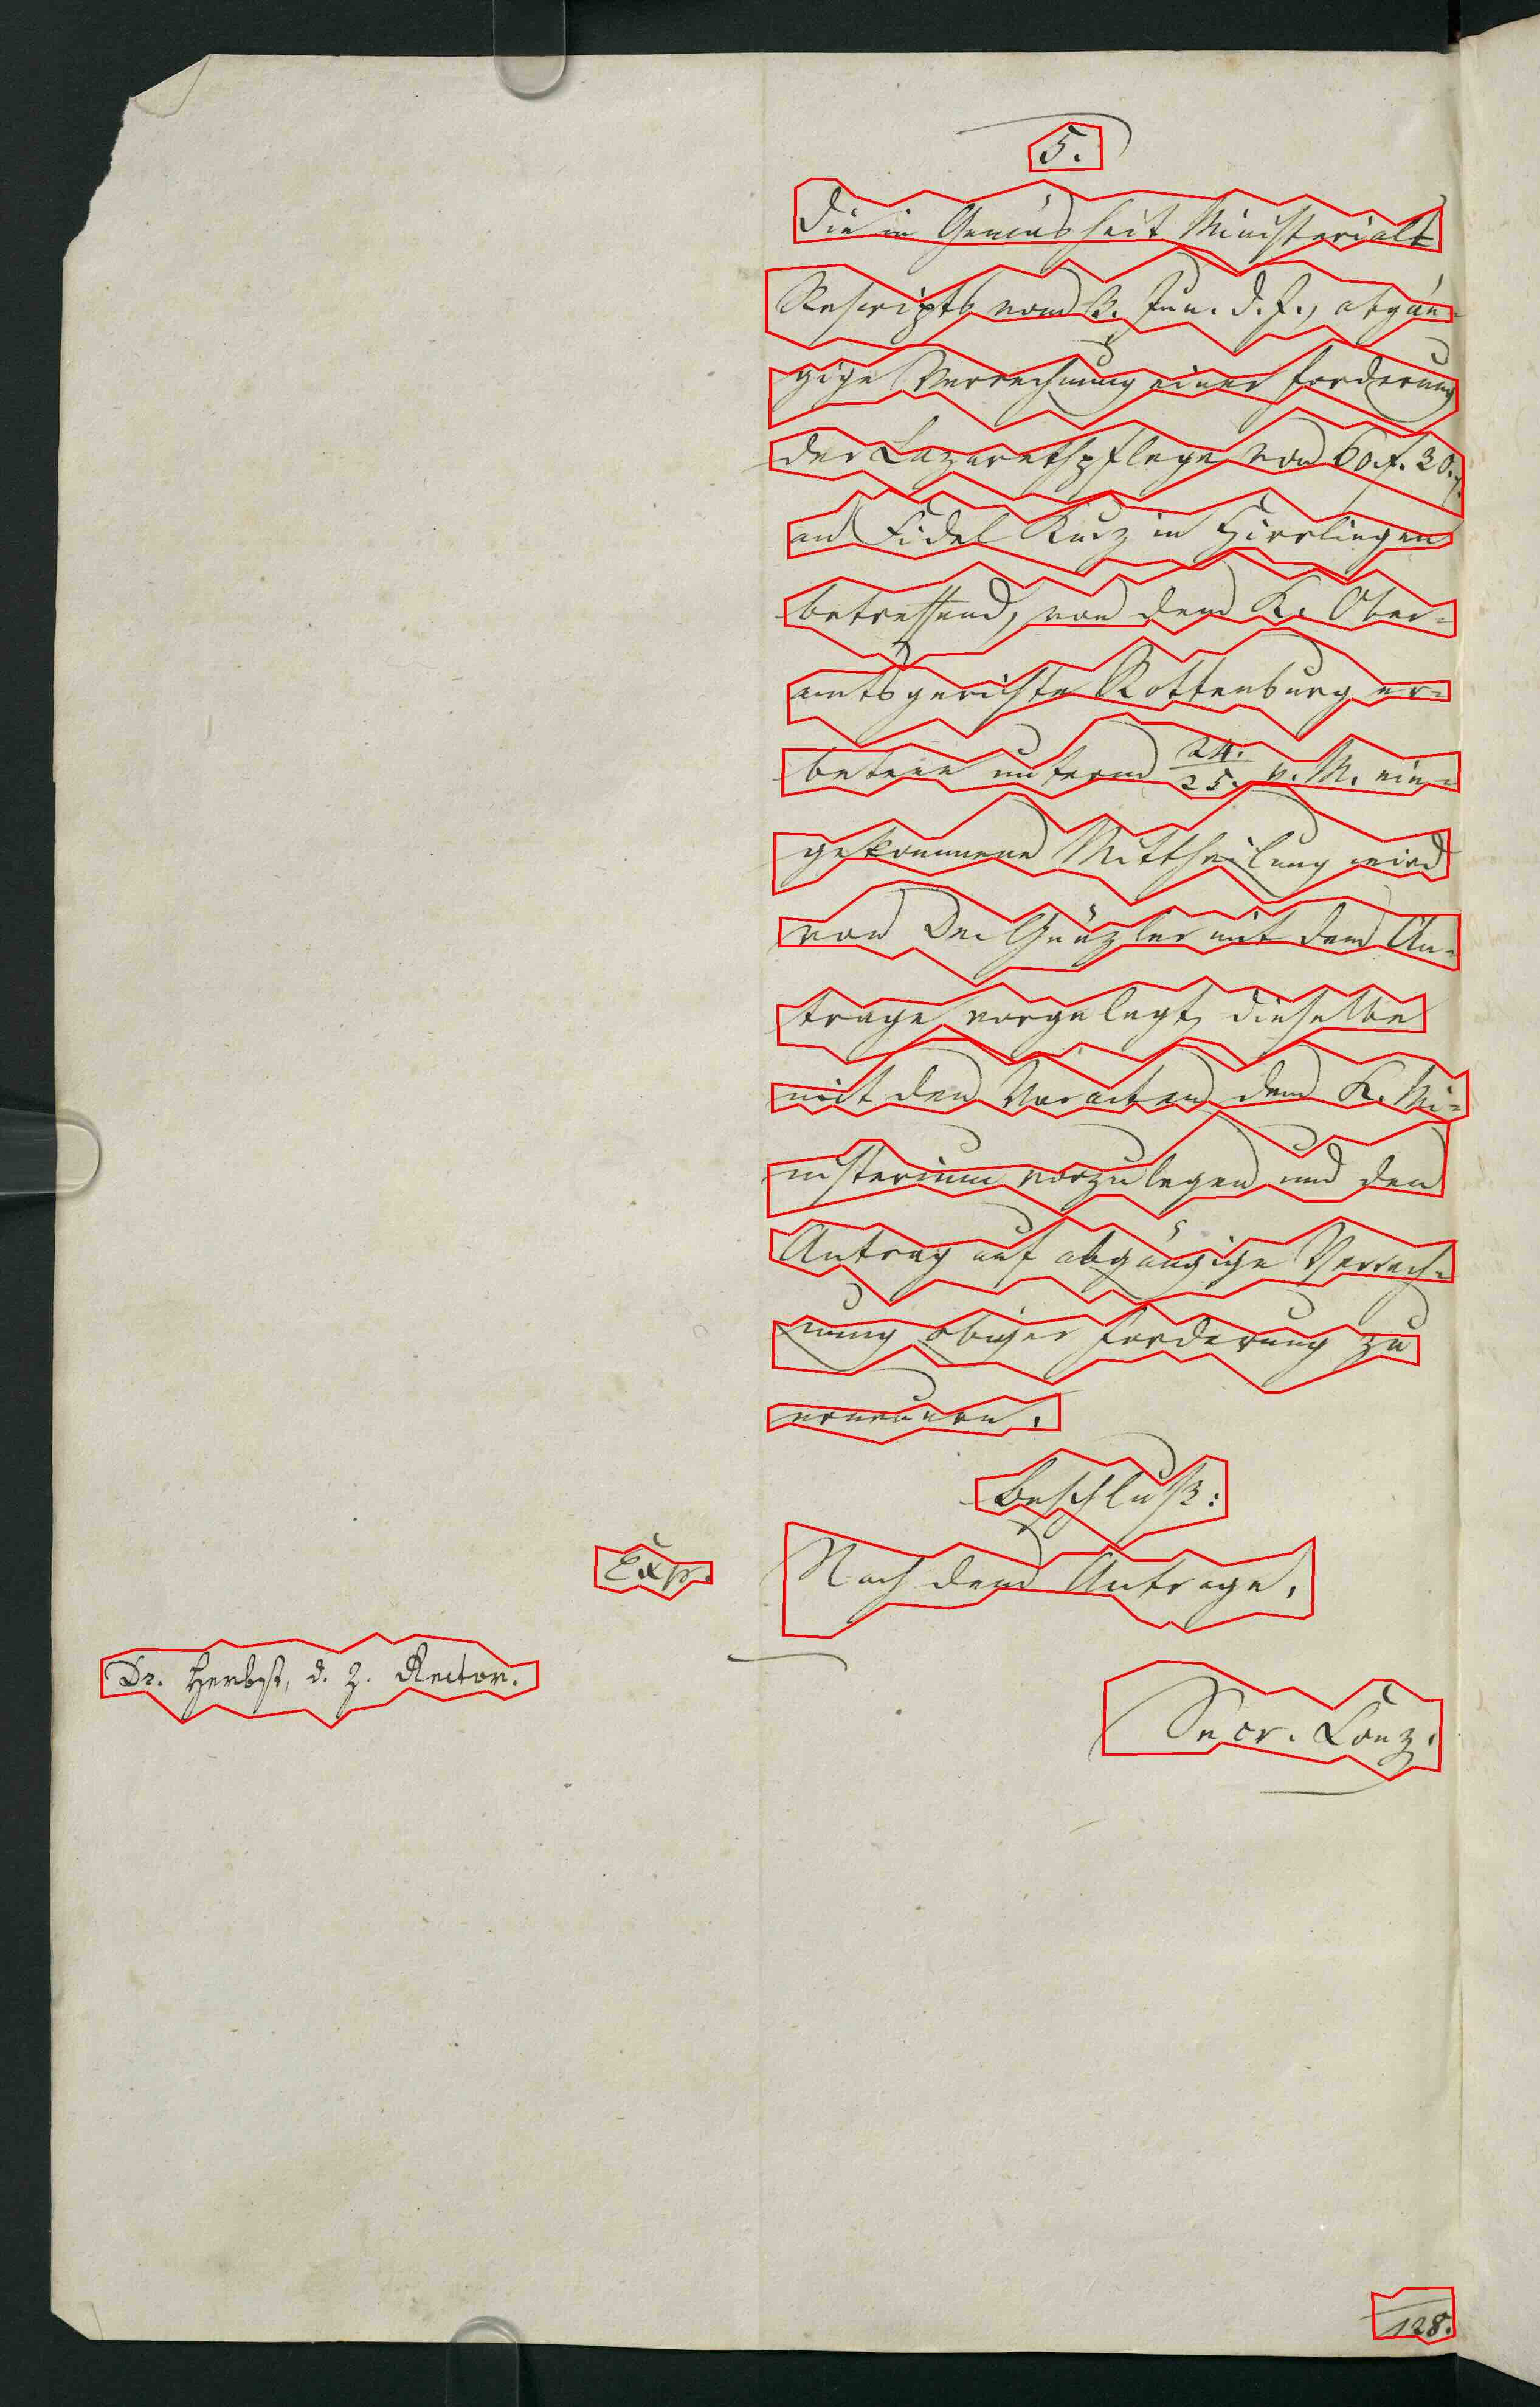 5.
Die in Gemäsheit Ministerial-
Rescripts vom 3. Jun. d. J., abgän-
gige Verrechnung einer Forderung
der Lazarethpflege von 60 f. 30.
an Fidel Kurz in Hirrlingen
betreffend, von dem K. Ober-
amtsgerichte Rottenburg er-
betene unterm 24./25. v. M. ein-
gekommene Mittheilung wird
von Dec. Gänzler mit dem An-
trage vorgelegt, dieselbe
mit den Voracten dem K. Mi-
nisterium vorzulegen und den
Antrag auf abgängige Verrech-
nung obiger Forderung zu
erneuern.
Beschluß:
Exp. Nach dem Antrage.
Dr. Herbst, d. Z. Rector.
Secr. Lonz.
128.